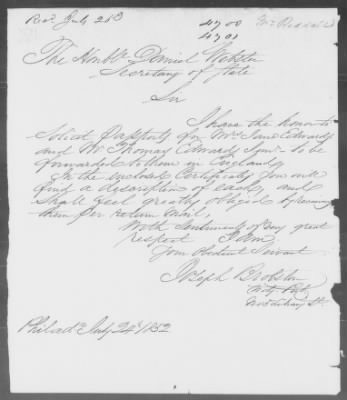 Recd July 25
4700
4701
The Honble Daniel Webster
Secretary of State
Sir
I have the honor to
solicit Passports for Mrs Jane Edwards
and Mr Thomas Edwards Junr to be
forwarded to them in England
In the enclosed Certificates you will
find a description of each, and
shall feel greatly obliged by receiving
them per return mail,
With Sentiments of very great
respect I am
Your Obedient Servant
Joseph
Noty Pub
St
Philada July 24th 1852